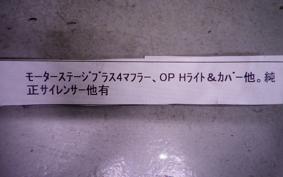 モーターステージﾌﾟﾗｽ4マフラー、OP Hライト＆ｶﾊﾞｰ他。純
正サイレンサー他有